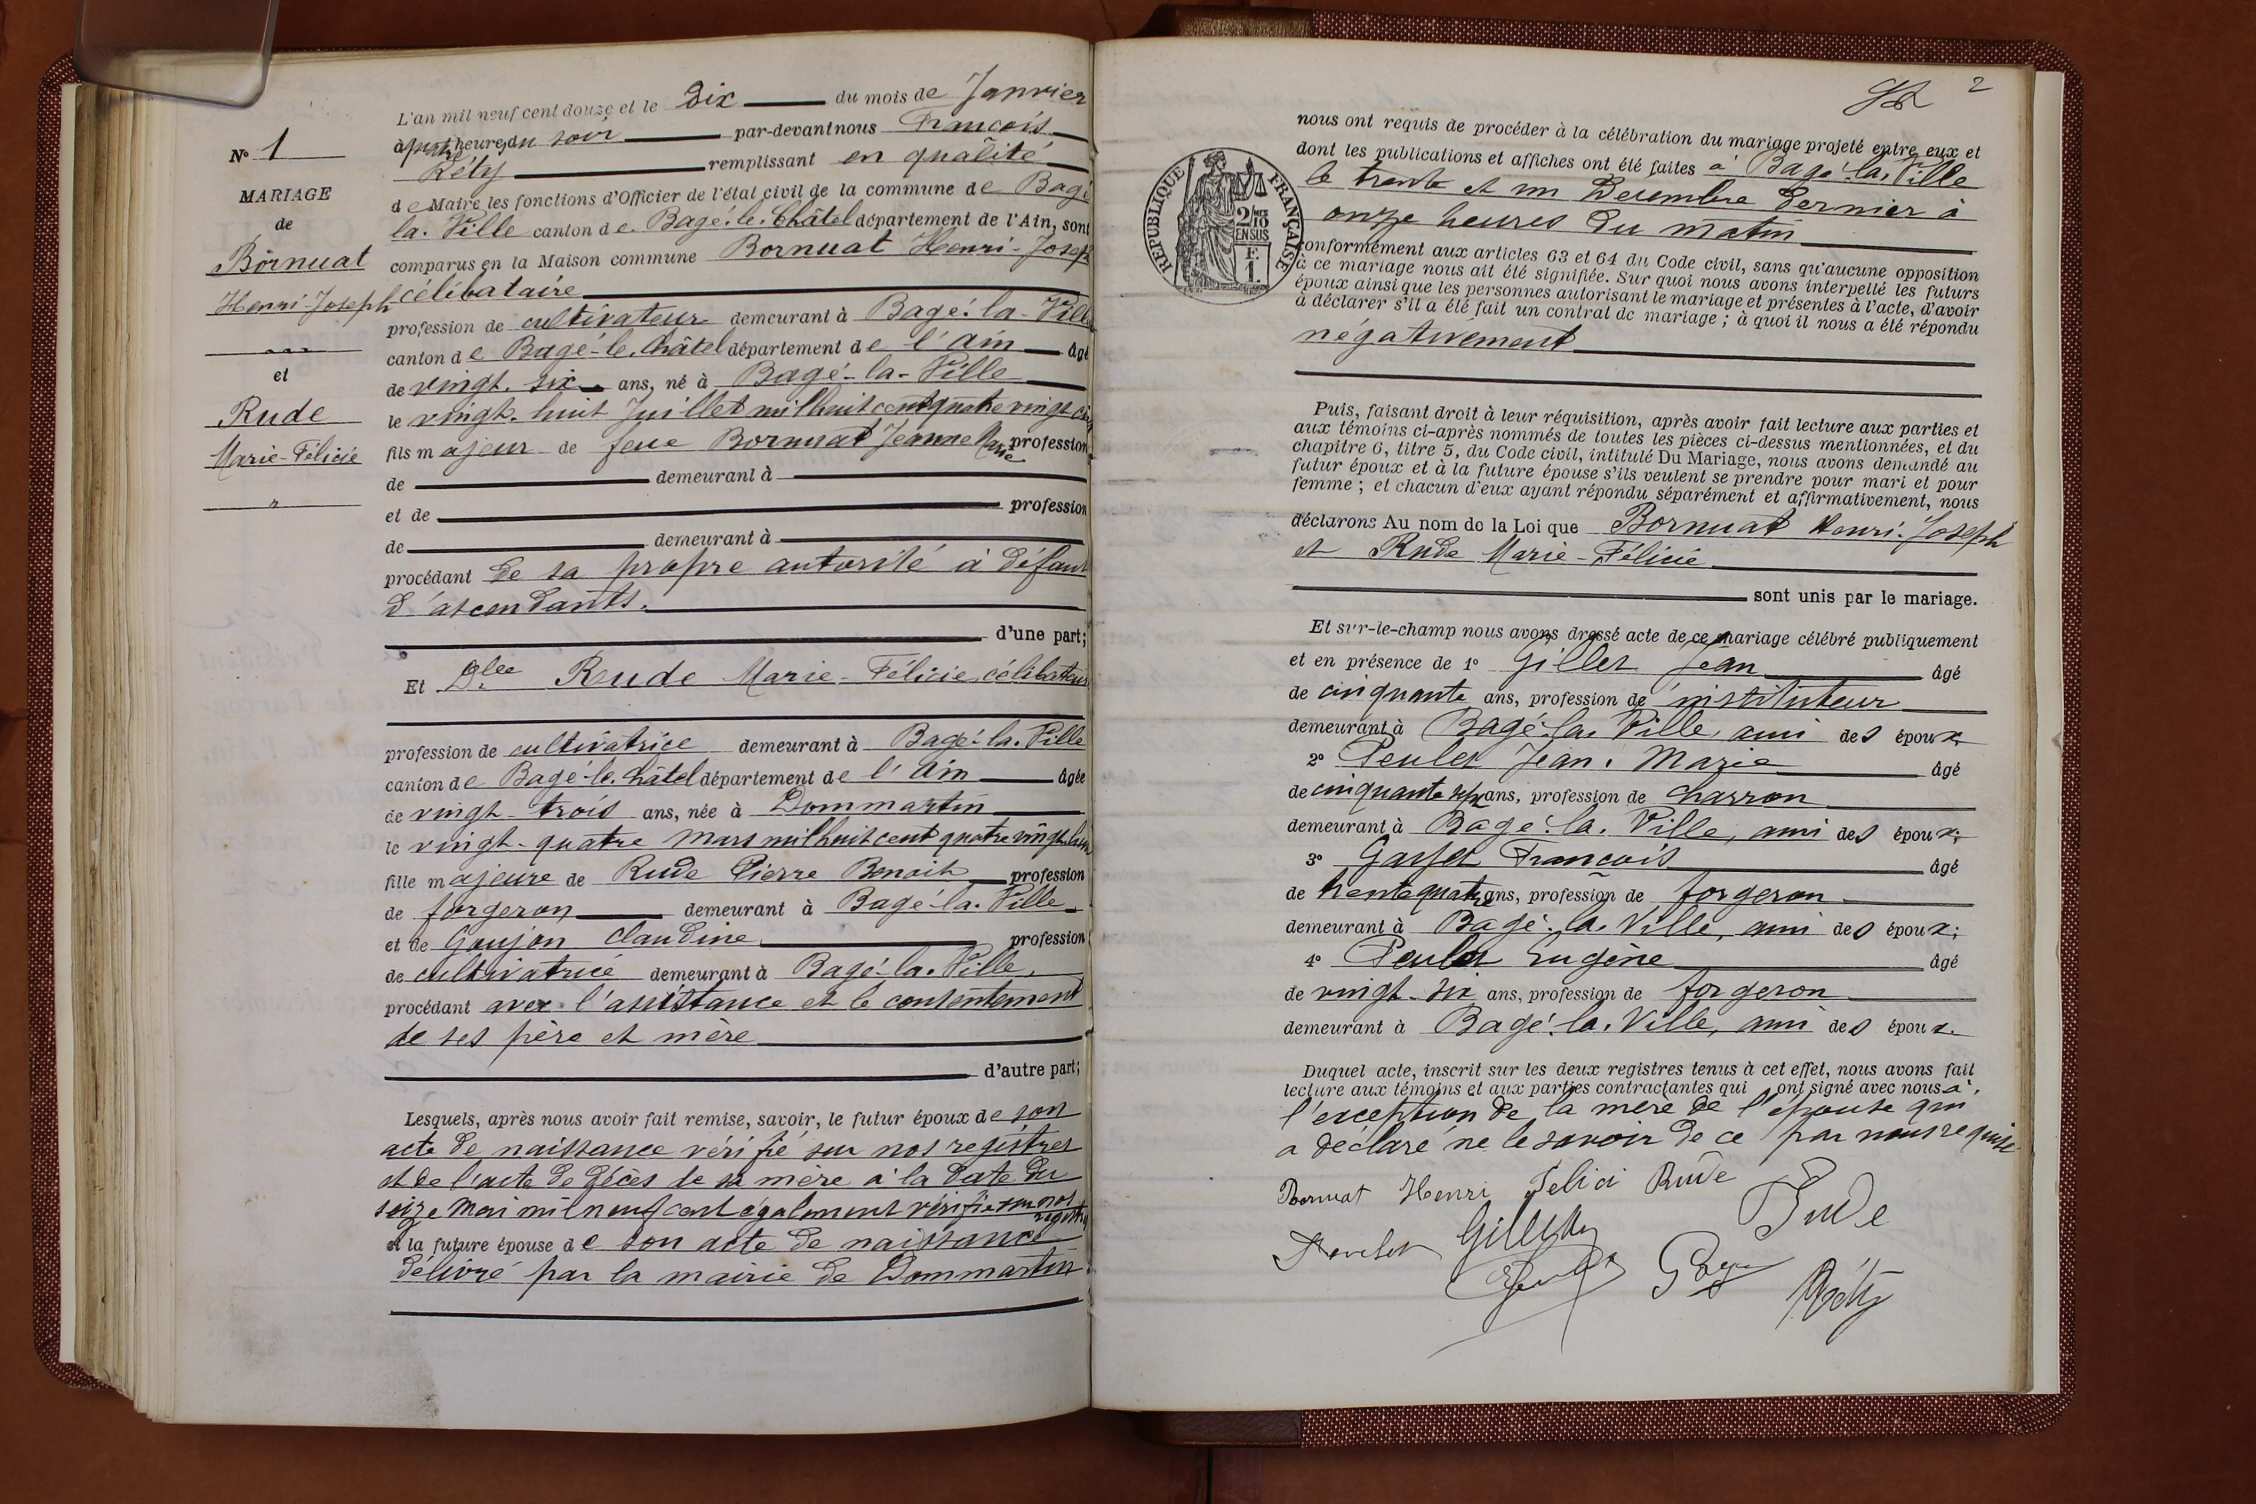 N° 1
MARIAGE
de
Bornuat
Henri-Joseph
et
Rude
Marie-Félicie
L'an mil neuf cent douze et le Six du mois de Janvier
à quatre heures du soir par-devant nous François
Réty remplissant en qualité
de Maire les fonctions d'Officier de l'état civil de la commune de Bagé
la-Ville canton de Bagé-le-Châtel département de l'Ain, sont
comparus en la Maison commune Bornuat Henri-Joseph
célibataire
profession de cultivateur demeurant à Bagé-la-Ville
canton de Bagé-le-Châtel département de l'Ain âgé
de vingt-six ans, né à Bagé-la-Ville
le vingt-huit Juillet mil huit cent quatre vingt cinq
fils majeur de feue Bornuat Jeanne Marie profession
de demeurant à
et de profession
de demeurant à
procédant de sa propre autorité à défaut
d'ascendants.
d'une part;
Et Dlle Rude Marie-Félicie, célibataire
profession de cultivatrice demeurant à Bagé-la-Ville
canton de Bagé-le-Châtel département de l'Ain âgée
de vingt-trois ans, née à Dommartin
le vingt-quatre Mars mil huit cent quatre vingt
fille majeure de Rude Pierre Benoit profession
de forgeron demeurant à Bagé-la-Ville
et de Goujon Claudine profession
de cultivatrice demeurant à Bagé-la-Ville,
procédant avec l'assistance et le consentement
de ses père et mère
d'autre part;
Lesquels, après nous avoir fait remise, savoir, le futur époux de son
acte de naissance vérifié sur nos registres
et de l'acte de décès de sa mère à la date du
seize Mai mil neuf cent également vérifié sur nos
registres
et la future épouse de son acte de naissance
délivré par la mairie de Dommartin
2
RÉPUBLIQUE FRANÇAISE
2/10
EN SUS
F.
1.
nous ont requis de procéder à la célébration du mariage projeté entre eux et
dont les publications et affiches ont été faites à Bagé-la-Ville
le trente et un Decembre dernier à
onze heures du matin
conformément aux articles 63 et 64 du Code civil, sans qu'aucune opposition
à ce mariage nous ait été signifiée. Sur quoi nous avons interpellé les futurs
époux ainsi que les personnes autorisant le mariage et présentes à l'acte, d'avoir
à déclarer s'il a été fait un contrat de mariage ; à quoi il nous a été répondu
négativement
Puis, faisant droit à leur réquisition, après avoir fait lecture aux parties et
aux témoins ci-après nommés de toutes les pièces ci-dessus mentionnées, et du
chapitre 6, titre 5, du Code civil, intitulé Du Mariage, nous avons demandé au
futur époux et à la future épouse s'ils veulent se prendre pour mari et pour
femme ; et chacun d'eux ayant répondu séparément et affirmativement, nous
déclarons Au nom de la Loi que Bornuat Henri-Joseph
et Rude Marie-Félicie
sont unis par le mariage.
Et sur-le-champ nous avons dressé acte de ce mariage célébré publiquement
et en présence de 1° Gillet Jean âgé
de cinquante ans, profession de instituteur
demeurant à Bagé-la-Ville, ami des époux;
2° Peulet Jean-Marie âgé
de cinquante sept ans, profession de charron
demeurant à Bagé-la-Ville, ami des époux;
3° François âgé
de trente quatre ans, profession de forgeron
demeurant à Bagé-la-Ville, ami des époux;
4° Peulet Eugène âgé
de vingt-six ans, profession de forgeron
demeurant à Bagé-la-Ville, ami des époux.
Duquel acte, inscrit sur les deux registres tenus à cet effet, nous avons fait
lecture aux témoins et aux parties contractantes qui ont signé avec nous à
l'exception de la mère de l'épouse qui
a déclaré ne le savoir de ce par nous requise
Bornuat Henri Felici Rude
Rude
Peulet Gillet
Réty